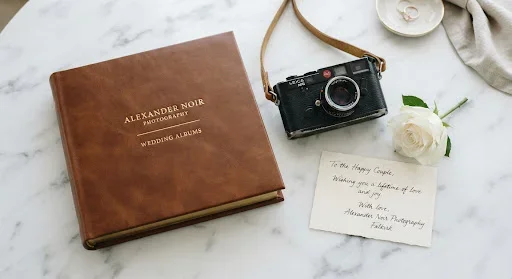 ALEXANDER NOIR
PHOTOGRAPHY
WEDDING ALBUMS
LEICA
To the Happy Couple,
Wishing you a lifetime of love
and joy.
With love,
Alexander Noir Photography
Falkirk